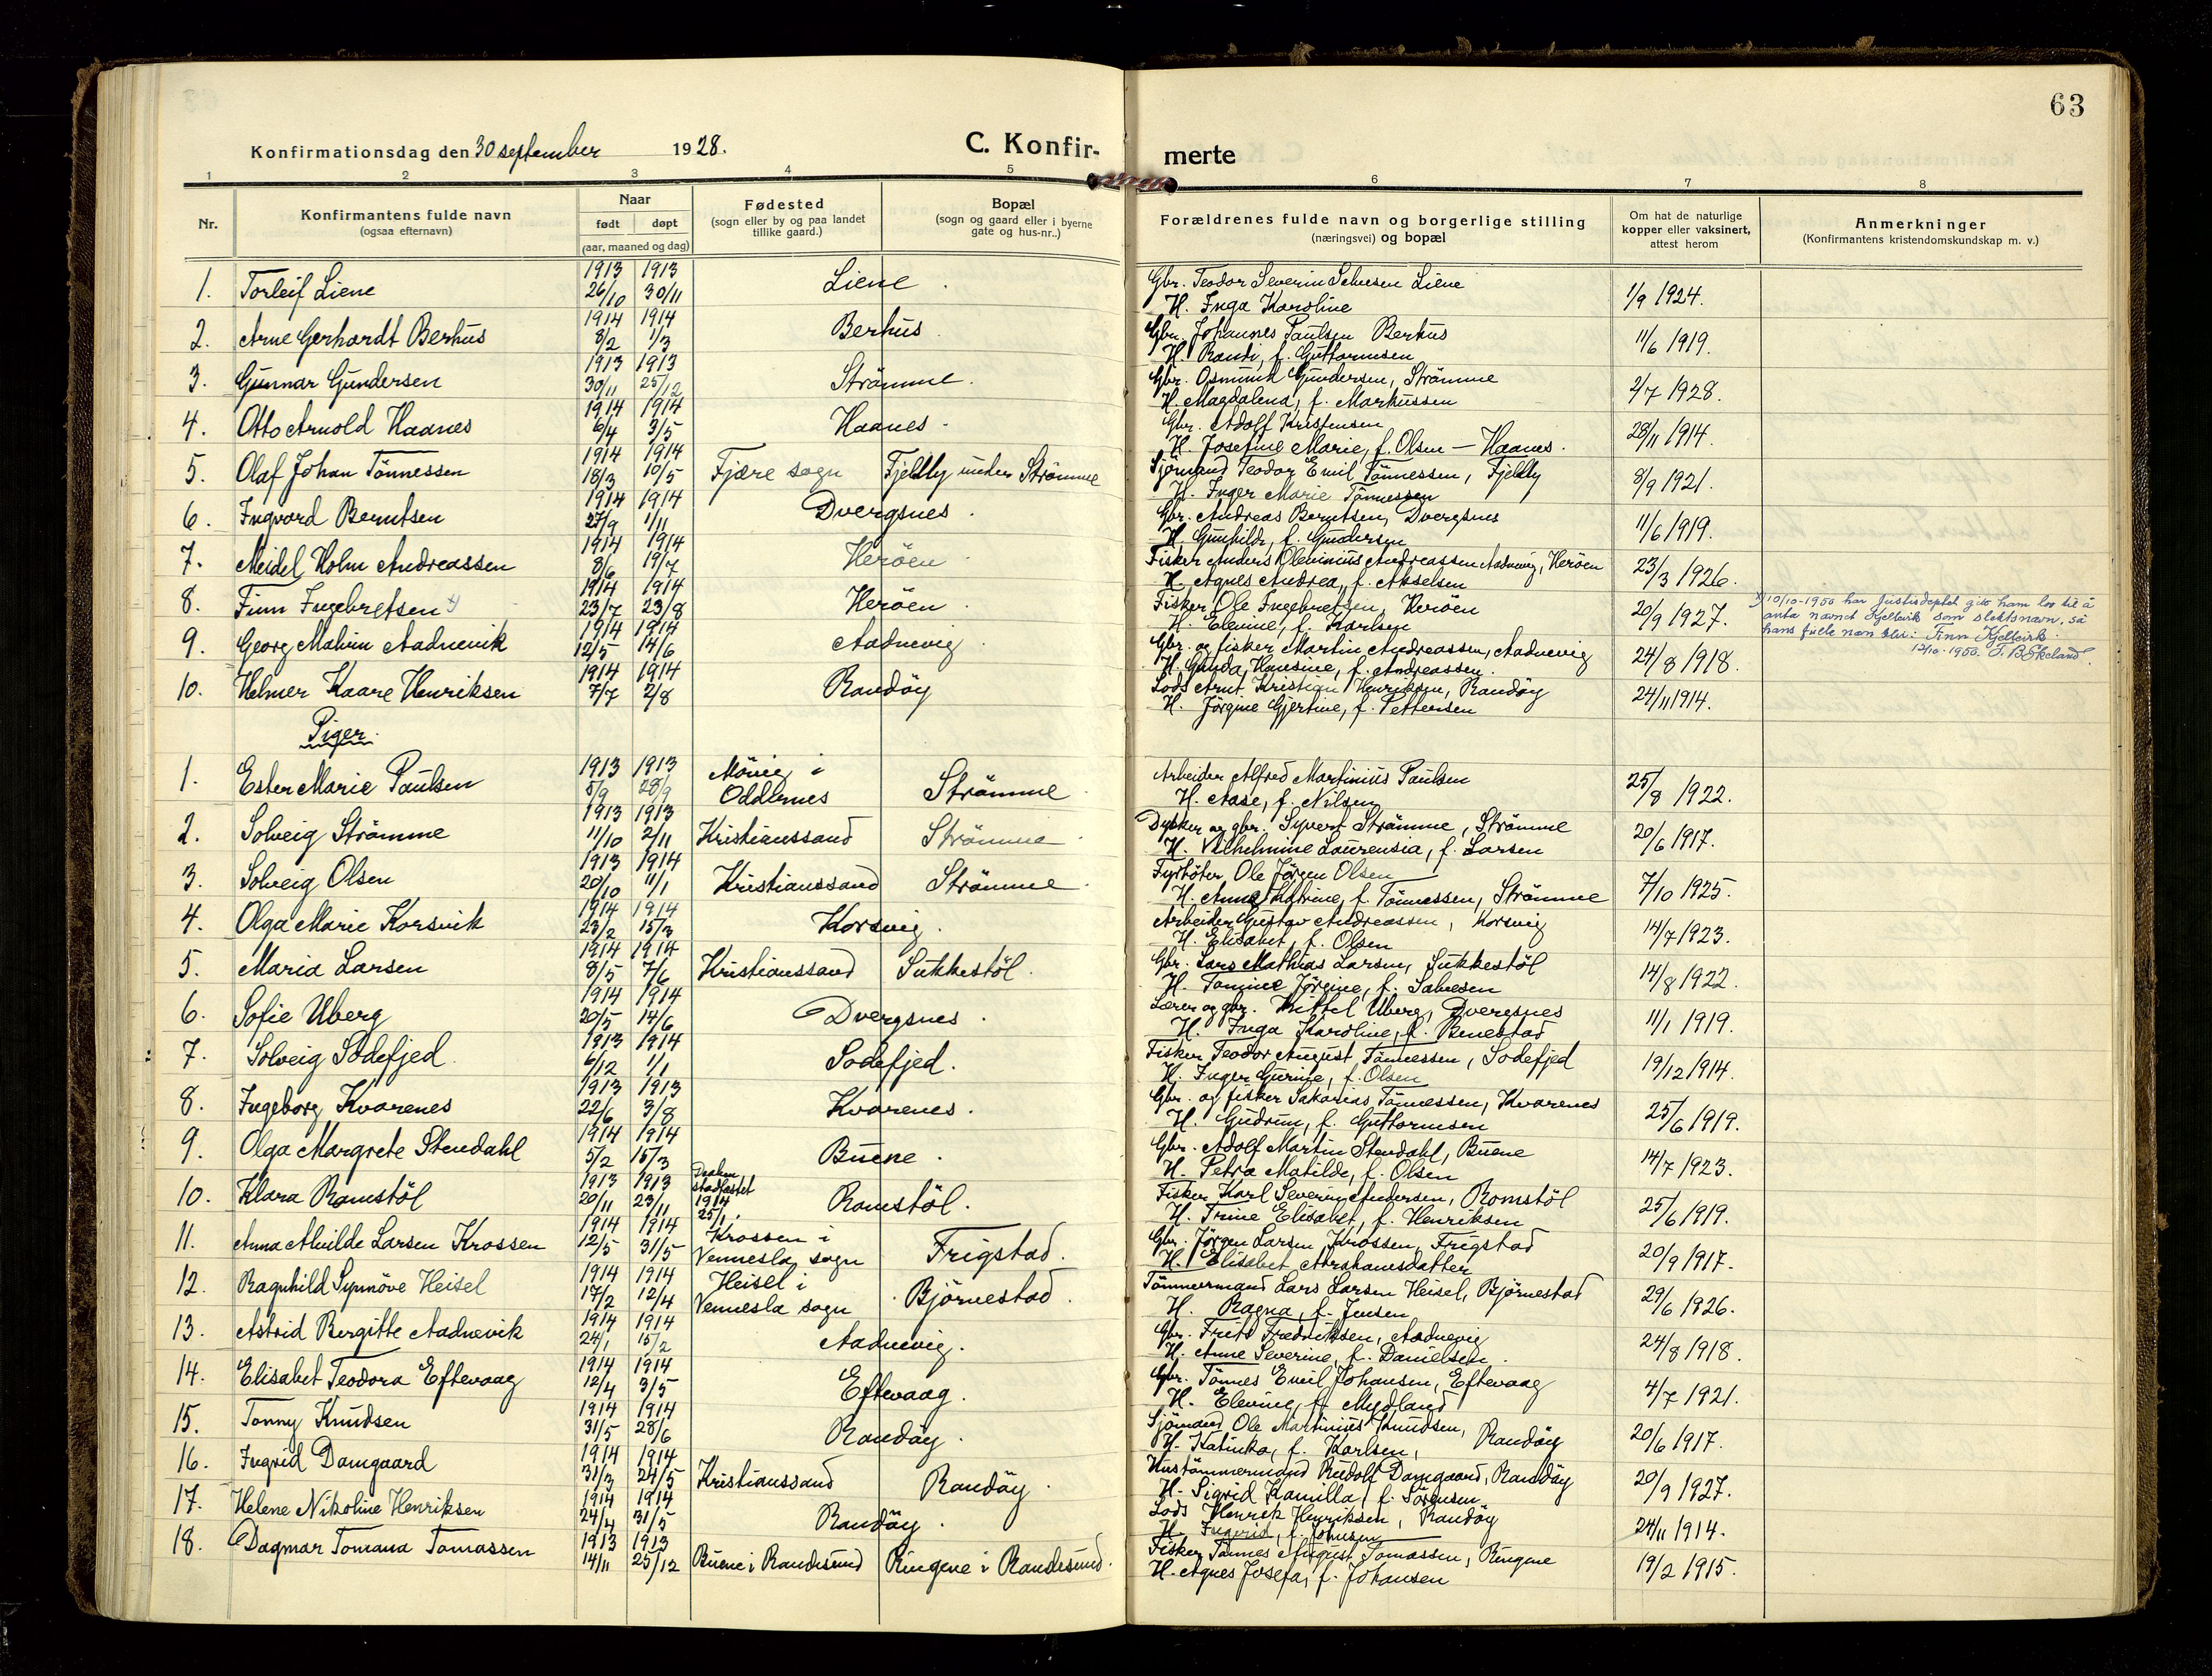 63
Konfirmationsdag den 30 september 1928. C. Konfir- merte
1 2 3 4 5 6 7 8
Nr. Konfirmantens fulde navn (ogsaa efternavn) Naar født døpt (aar, maaned og dag) Fødested (sogn eller by og paa landet tillike gaard.) Bopæl (sogn og gaard eller i byerne gate og hus-nr..) Forældrenes fulde navn og borgerlige stilling (næringsvei) og bopæl Om hat de naturlige kopper eller vaksinert, attest herom Anmerkninger (Konfirmantens kristendomskundskap m. v.)
1. Torleif Liene 1913 26/10 1913 30/11 Liene. Gbr. Teodor Severin Liene
H. Inga Karoline 1/9 1924.
2. Arne Gerhardt Berhus 1914 8/2 1914 1/3 Berhus. Gbr. Johannes Paulsen Berhus
H. Randi, f. Guttormsen 11/6 1919.
3. Gunnar Gundersen 1913 30/11 1913 25/12 Strømme. Gbr. Osmund Gundersen, Strømme
H. Magdalena, f. Markussen 2/7 1928.
4. Otto Arnold Haanes 1914 6/4 1914 3/5 Haanes. Gbr. Adolf Kristensen
H. Josefine Marie, f. Olsen — Haanes. 28/11 1914.
5. Olaf Johan Tönnessen 1914 18/3 1914 10/5 Fjære sogn Fjeldly under Strömme Sjömand Teodor Emil Tönnessen, Fjeldly
H. Inger Marie Tönnessen 8/9 1921.
6. Ingvard Berntsen 1914 27/9 1914 1/11 Dvergsnes. Gbr. Andreas Berntsen, Dvergsnes
H. Gunhilde, f. Gundersen 11/6 1919.
7. Meidel Holm Andreassen 1914 8/6 1914 19/7 Heröen. Fisker Anders Oleminius Andreassen Aadnevig, Heröen
H. Agnes Andrea, f. Akselsen 23/3 1926.
8. Finn Ingebretsen x) 1914 23/7 1914 23/8 Heröen. Fisker Ole Ingebretsen, Heröen
H. Elevine, f. Karlsen 20/9 1927.
x) 10/10-1950 har Justisdeptet gitt ham lov til å
anta navnet Kjellevik som slektsnavn, så
hans fulle navn blir: Finn Kjellevik.
12/10-1950. T. B. Ekeland.
9. Georg Malvin Aadnevik 1914 12/5 1914 14/6 Aadnevig. Gbr. og fisker Martin Andreassen, Aadnevig
H. Gunda Hansine, f. Andreassen. 24/8 1918.
10. Helmer Kaare Henriksen 1914 7/7 1914 2/8 Randöy Lods Arnt Kristian Henriksen, Randöy
H. Jörgine Gjertine, f. Pettersen 24/11 1914.
Piger.
1. Ester Marie Paulsen 1913 5/9 1913 28/9 Mövig i Oddernes Strömme. Arbeider Alfred Martinius Paulsen
H. Aase, f. Nilsen 25/8 1922.
2. Solveig Strömme 1913 11/10 1913 2/11 Kristianssand Strömme Dykker og gbr. Syvert Strömme, Strömme
H. Vilhelmine Laurensia, f. Larsen 20/6 1917.
3. Solveig Olsen 1913 20/10 1914 11/1 Kristianssand Strömme. Fyrböter Ole Jörgen Olsen
H. Anne Katrine, f. Tönnessen, Strömme 7/10 1925.
4. Olga Marie Korsvik 1914 23/2 1914 15/3 Korsvig. Arbeider Gustav Andreassen, Korsvig
H. Elisabet, f. Olsen 14/7 1923.
5. Maria Larsen 1914 8/5 1914 7/6 Kristianssand Sukkestöl. Gbr. Lars Mathias Larsen, Sukkestöl
H. Tomine Jörgine, f. Salvesen 14/8 1922.
6. Sofie Uberg 1914 20/5 1914 14/6 Dvergsnes. Lærer og gbr. Kittel Uberg, Dvergsnes
H. Inga Karoline, f. Benestad 11/1 1919.
7. Solveig Sodefjed. 1913 6/12 1914 1/1 Sodefjed. Fisker Teodor August Tönnessen, Sodefjed
H. Inger Gurine, f. Olsen 19/12 1914.
8. Ingeborg Kvarenes 1913 22/6 1913 3/8 Kvarenes. Gbr. og fisker Sakarias Tönnessen, Kvarenes
H. Gudrun, f. Guttormsen 25/6 1919.
9. Olga Margrete Stendahl 1914 5/2 1914 15/3 Buene. Gbr. Adolf Martin Stendahl, Buene
H. Petra Matilde, f. Olsen 14/7 1923.
10. Klara Romstöl 1913 20/11 1913 23/11 Daaben stadfæstet 1914 25/1. Romstöl. Fisker Karl Severin Andersen, Romstöl
H. Trine Elisabet, f. Henriksen 25/6 1919.
11. Anna Alvilde Larsen Krossen 1914 12/5 1914 31/5 Krossen i Vennesla sogn Frigstad. Gbr. Jörgen Larsen Krossen, Frigstad
H. Elisabet Abrahamsdatter 20/9 1917.
12. Ragnhild Synnöve Heisel 1914 17/2 1914 12/4 Heisel i Vennesla sogn Björnestad. Tömmermand Lars Larsen Heisel, Björnestad
H. Ragna, f. Jensen 29/6 1926.
13. Astrid Bergitte Aadnevik 1914 24/1 1914 15/2 Aadnevig. Gbr. Frits Fredriksen, Aadnevig
H. Anne Severine, f. Danielsen. 24/8 1918.
14. Elisabet Teodora Eftevaag 1914 12/4 1914 3/5 Eftevaag. Gbr. Tönnes Emil Johansen, Eftevaag
H. Elevine, f. Mydland 4/7 1921.
15. Tonny Knudsen 1914 31/5 1914 28/6 Randöy. Sjömand Ole Martinius Knudsen, Randöy
H. Katinka, f. Karlsen, 20/6 1917.
16. Ingrid Damgaard 1914 31/3 1914 24/5 Kristianssand Randöy. Hustömmermand Rudolf Damgaard, Randöy
H. Sigrid Kamilla, f. Sörensen 20/9 1927.
17. Helene Nikoline Henriksen 1914 24/4 1914 31/5 Randöy. Lods Henrik Henriksen, Randöy
H. Ingvrid, f. Johnsen 24/11 1914.
18. Dagmar Tomana Tomassen 1913 14/11 1913 25/12 Buene i Randesund Ringene i Randesund. Fisker Tönnes August Tomassen, Ringene
H. Agnes Josefa, f. Johansen 19/2 1915.